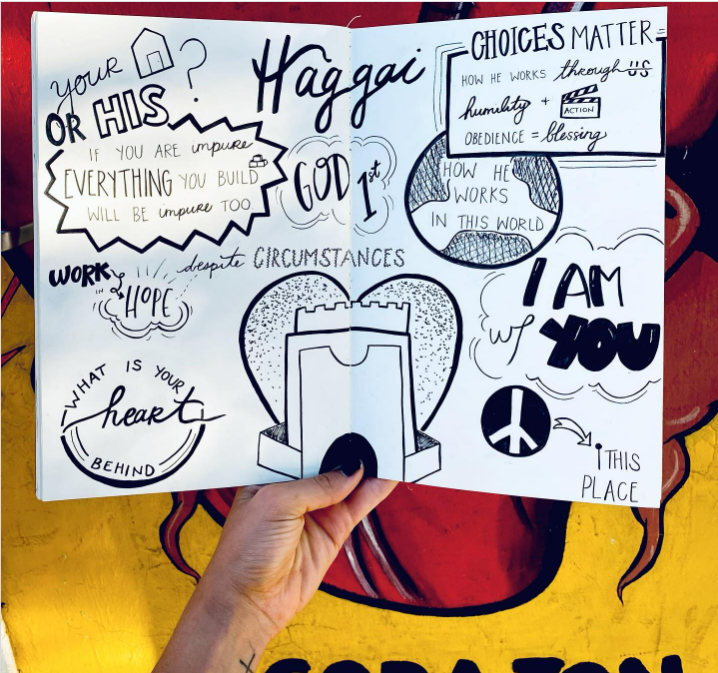 your ?
OR HIS
IF YOU ARE impure
EVERYTHING YOU BUILD
WILL BE impure TOO
Haggai
GOD 1st
CHOICES MATTER
HOW HE WORKS through US
humility + ACTION
OBEDIENCE = blessing
HOW HE
WORKS
IN THIS WORLD
WORK
IN HOPE
despite CIRCUMSTANCES
I AM
w/ YOU
WHAT IS YOUR
heart
BEHIND
THIS
PLACE